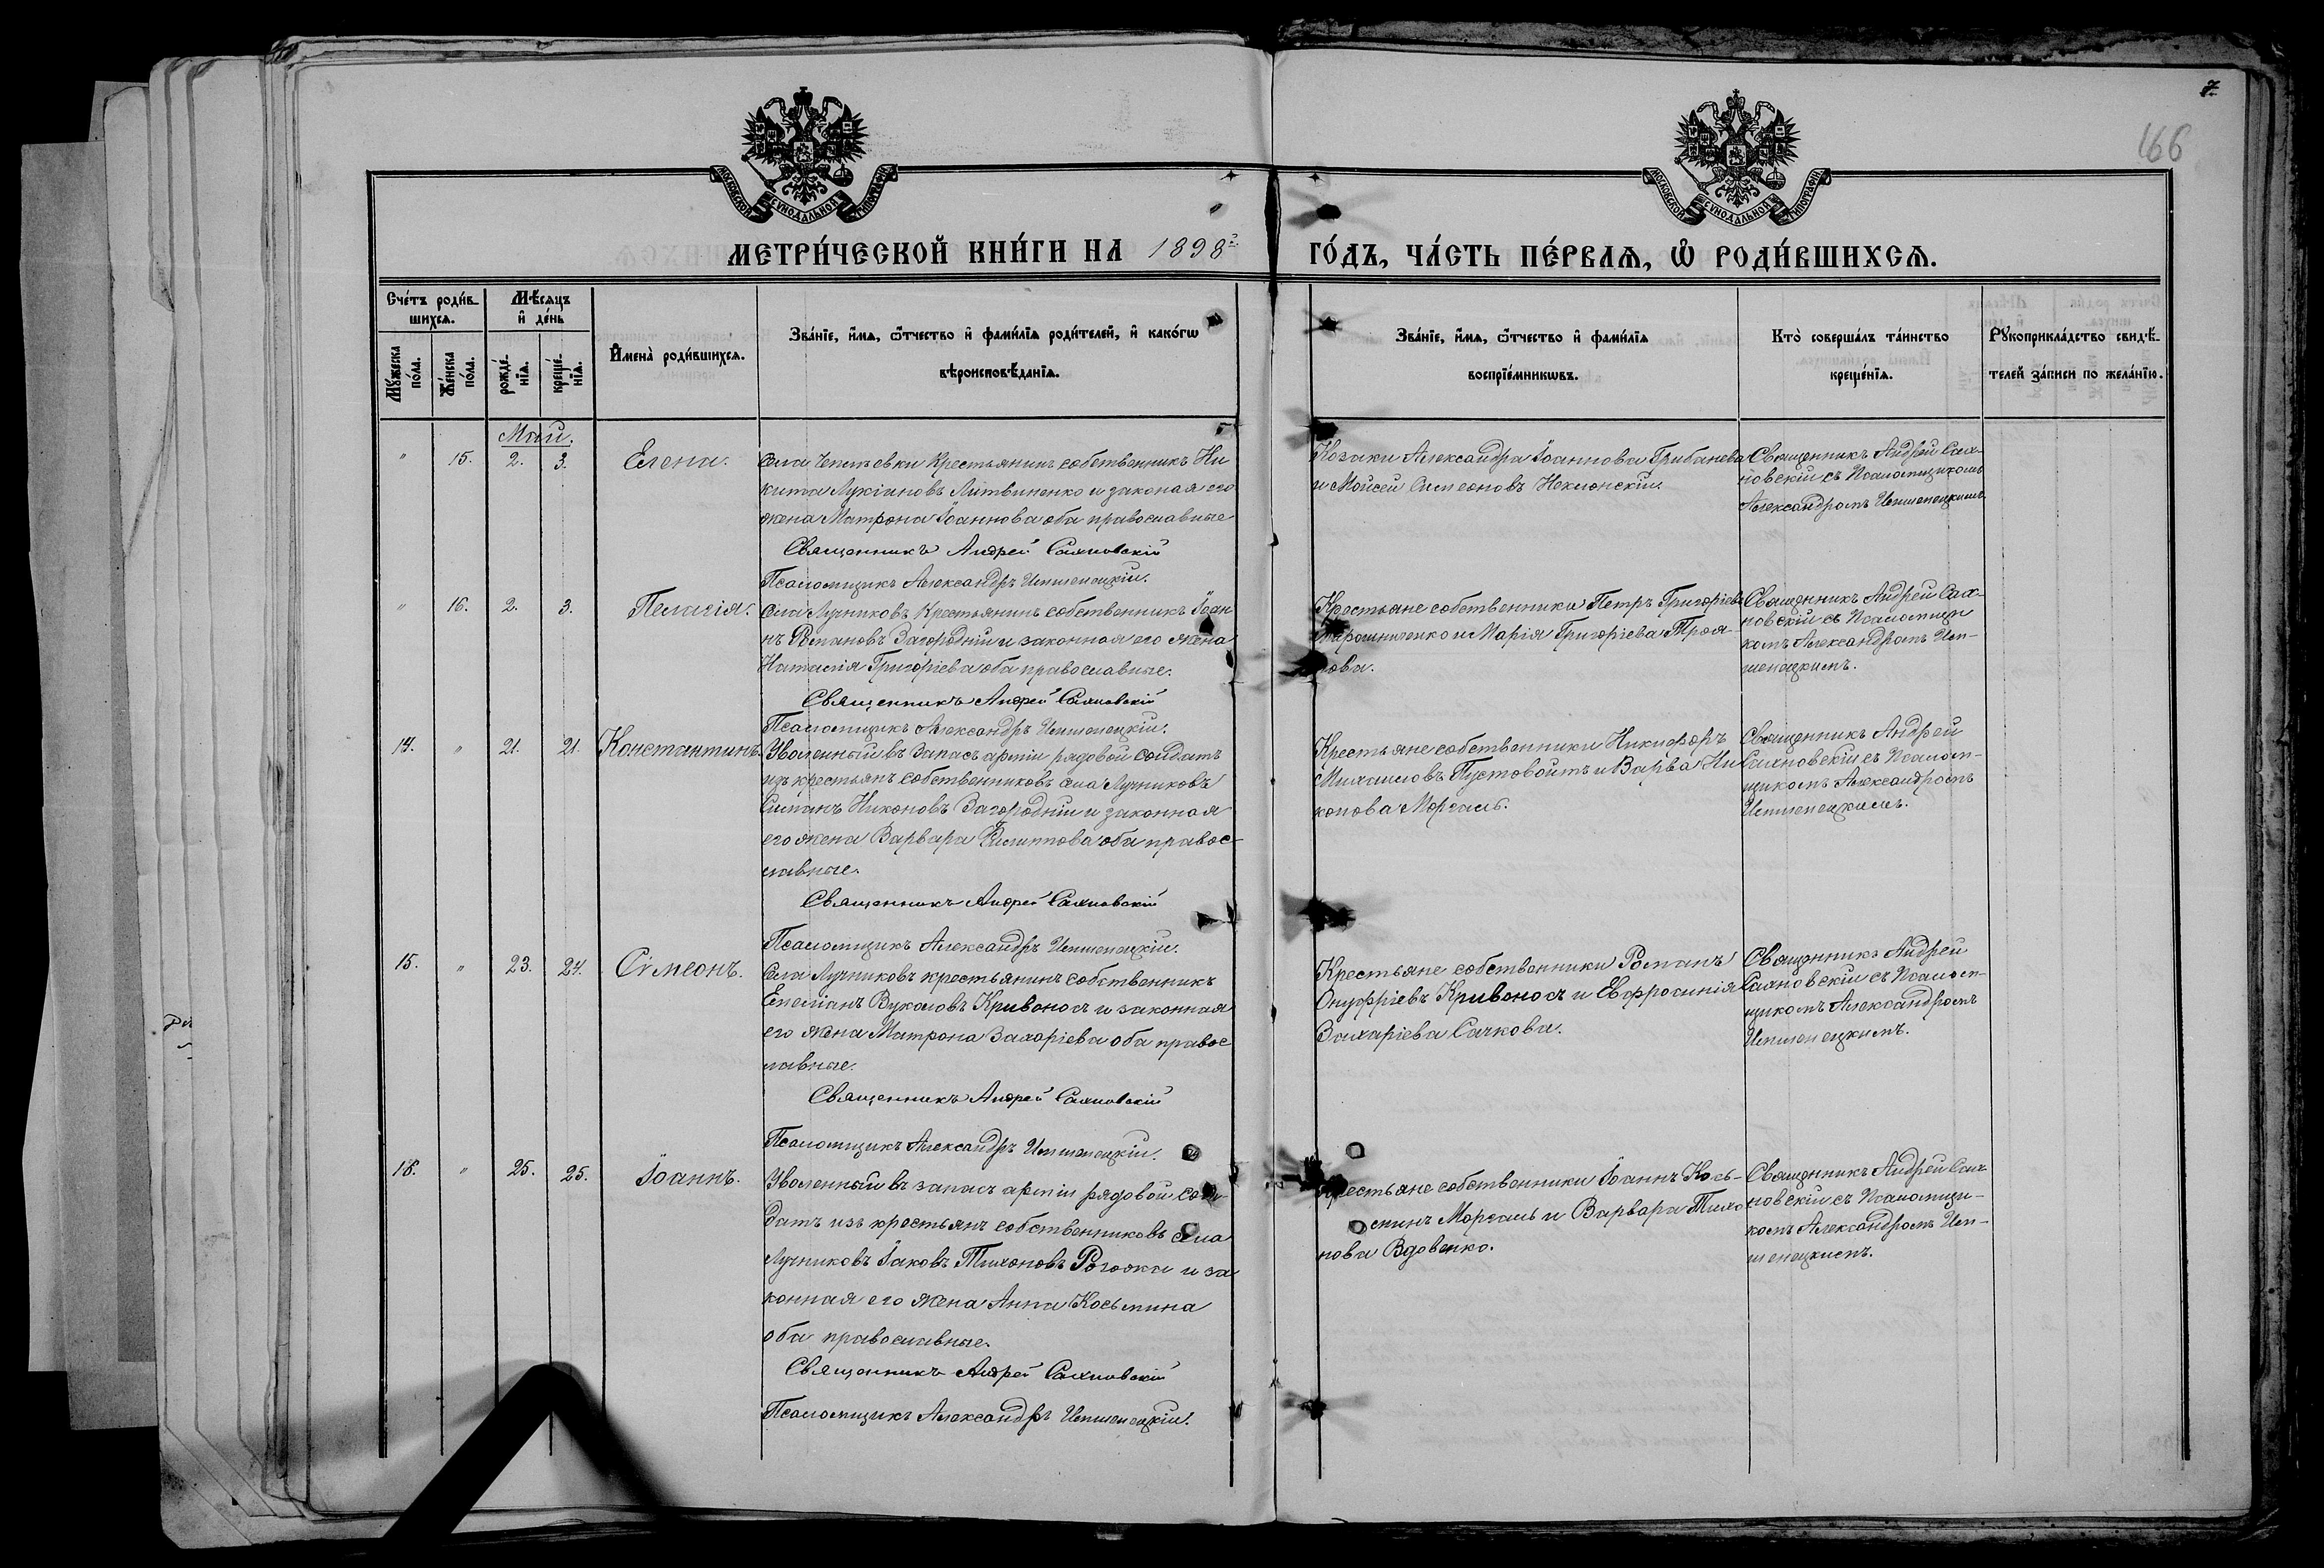 7
166
МОСКОВСКОЙ СѴНОДАЛЬНОЙ ТИПОГРАФІИ
МОСКОВСКОЙ СѴНОДАЛЬНОЙ ТИПОГРАФІИ
МЕТРИ́ЧЕСКОЙ КНИ́ГИ НА 1898 г. ГО́ДЪ, ЧА́СТЬ ПЕ́РВАѦ, Ѽ РОДИ́ВШИХСѦ.
Сче́тъ роди́в-
шихсѧ.
Мꙋжеска по́ла.
Же́нска по́ла.
Мѣ́сѧцъ
и҆ де́нь
рожде́-
нїѧ.
креще́-
нїѧ.
И҆мена̀ роди́вшихсѧ.
Зва́нїе, и҆́мѧ, ѻ҆́тчество и҆ фами́лїѧ роди́телей, и҆ како́гѡ
вѣроисповѣ́данїѧ.
Зва́нїе, и҆́мѧ, ѻ҆́тчество и҆ фами́лїѧ
воспрїе́мникѡвъ.
Кто̀ соверша́лъ та́инство
креще́нїѧ.
Рꙋкоприкла́дство свидѣ́-
телей за́писи по жела́нїю.
Май.
" 15. 2. 3. Елена.
Села Чепиевки Крестьянинъ собственникъ Ни
кита Лукіановъ Литвиненко и законая его
жена Матрона Іоаннова оба православные
Священникъ Андрей Сахновскій
Псаломщикъ Александръ
Козаки Александра Іоаннова Грибанева
и Моисей Симеоновъ
Священникъ Андрей Сах-
новскій съ Псаломщикомъ
Александромъ
" 16. 2. 3. Пелагія.
Села Лучниковъ Крестьянинъ собственникъ Іоан
нъ Романовъ Загородній и законная его жена
Наталія Григоріева оба православные.
Священникъ Андрей Сахновскій
Псаломщикъ Александръ
Крестьяне собственники Петръ Григоріевъ
и Марія Григоріева Троя-
нова.
Священникъ Андрей Сах-
новскій съ Псаломщи
комъ Александромъ
14. " 21. 21. Константинъ.
Уволенный въ Запасъ арміи рядовой солдатъ
изъ крестьянъ собственниковъ села Лучниковъ
Никоновъ Загородній и законная
его жена Варвара Филиппова оба правос-
лавные.
Священникъ Андрей Сахновскій
Псаломщикъ Александръ
Крестьяне собственники Никифоръ
Михаиловъ Пустовойтъ и Варва Ни
конова Моргаль.
Священникъ Андрей
Сахновскій съ Псалом-
щикомъ Александромъ
15. " 23. 24. Сѵмеонъ.
Села Лучниковъ крестьянинъ собственникъ
Емеліанъ Вуколовъ Кривоносъ и законная
его жена Матрона Захаріева оба правос
лавные.
Священникъ Андрей Сахновскій
Псаломщикъ Александръ
Крестьяне собственники Романъ
Онуфріевъ Кривоносъ и Евфросинія
Захаріева Сачкова.
Священникъ Андрей
Сахновскій съ Псалом-
щикомъ Александромъ
16. " 25. 25. Іоаннъ.
Уволенный въ запасъ арміи рядовой сол-
датъ изъ крестьянъ собственниковъ села
Лучниковъ Іаковъ Тихоновъ Рогожка и за
конная его жена Анна Косьмина
оба православные.
Священникъ Андрей Сахновскій
Псаломщикъ Александръ
Крестьяне собственники Іоаннъ Кось-
минъ Моргаль и Варвара Тихо
нова Вдовенко.
Священникъ Андрей Сах
новскій съ Псаломщи-
комъ Александромъ